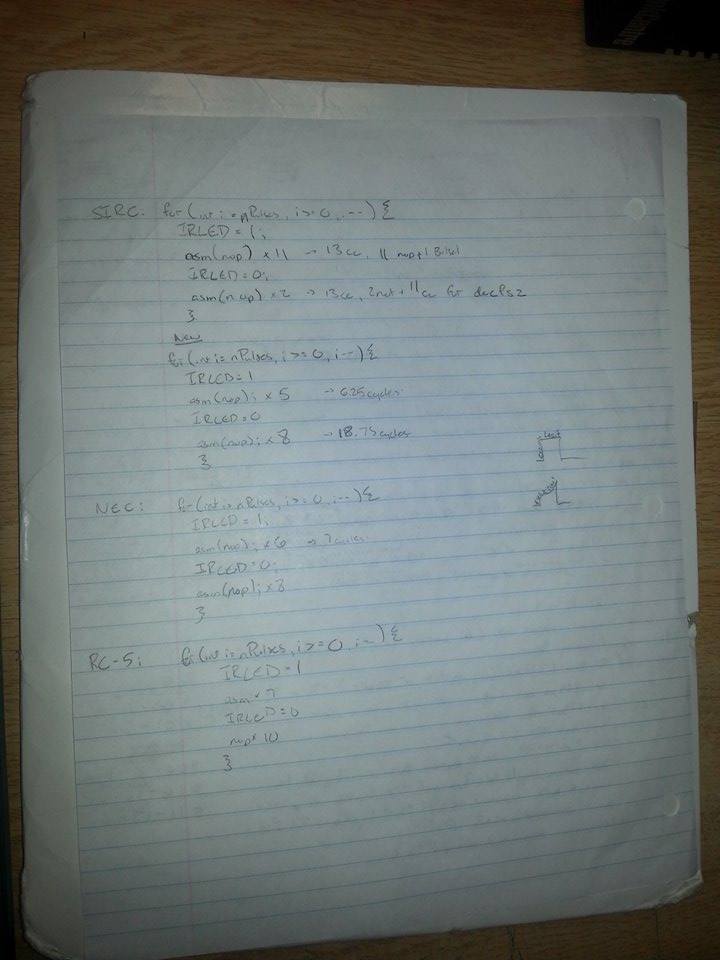 SIRC. for (int i = nPulses, i >= 0, i--) {
IRLED = 1;
asm(nop) x 11 → 13cc, 11 nop + 1 BitSet
IRLED = 0;
asm(nop) x 2 → 13cc, 2 + 11cc for
}
New
for (int i = nPulses, i >= 0, i--) {
IRLED = 1
asm(nop); x 5 → 6.25 cycles
IRLED = 0
asm(nop); x 8 → 18.75 cycles
}
NEC: for (int i = nPulses, i >= 0, i--) {
IRLED = 1;
asm(nop); x 6 → 7 cycles
IRLED = 0;
asm(nop); x 8
}
RC-5: for (int i = nPulses, i >= 0, i--) {
IRLED = 1
asm x 7
IRLED = 0
nop x 10
}